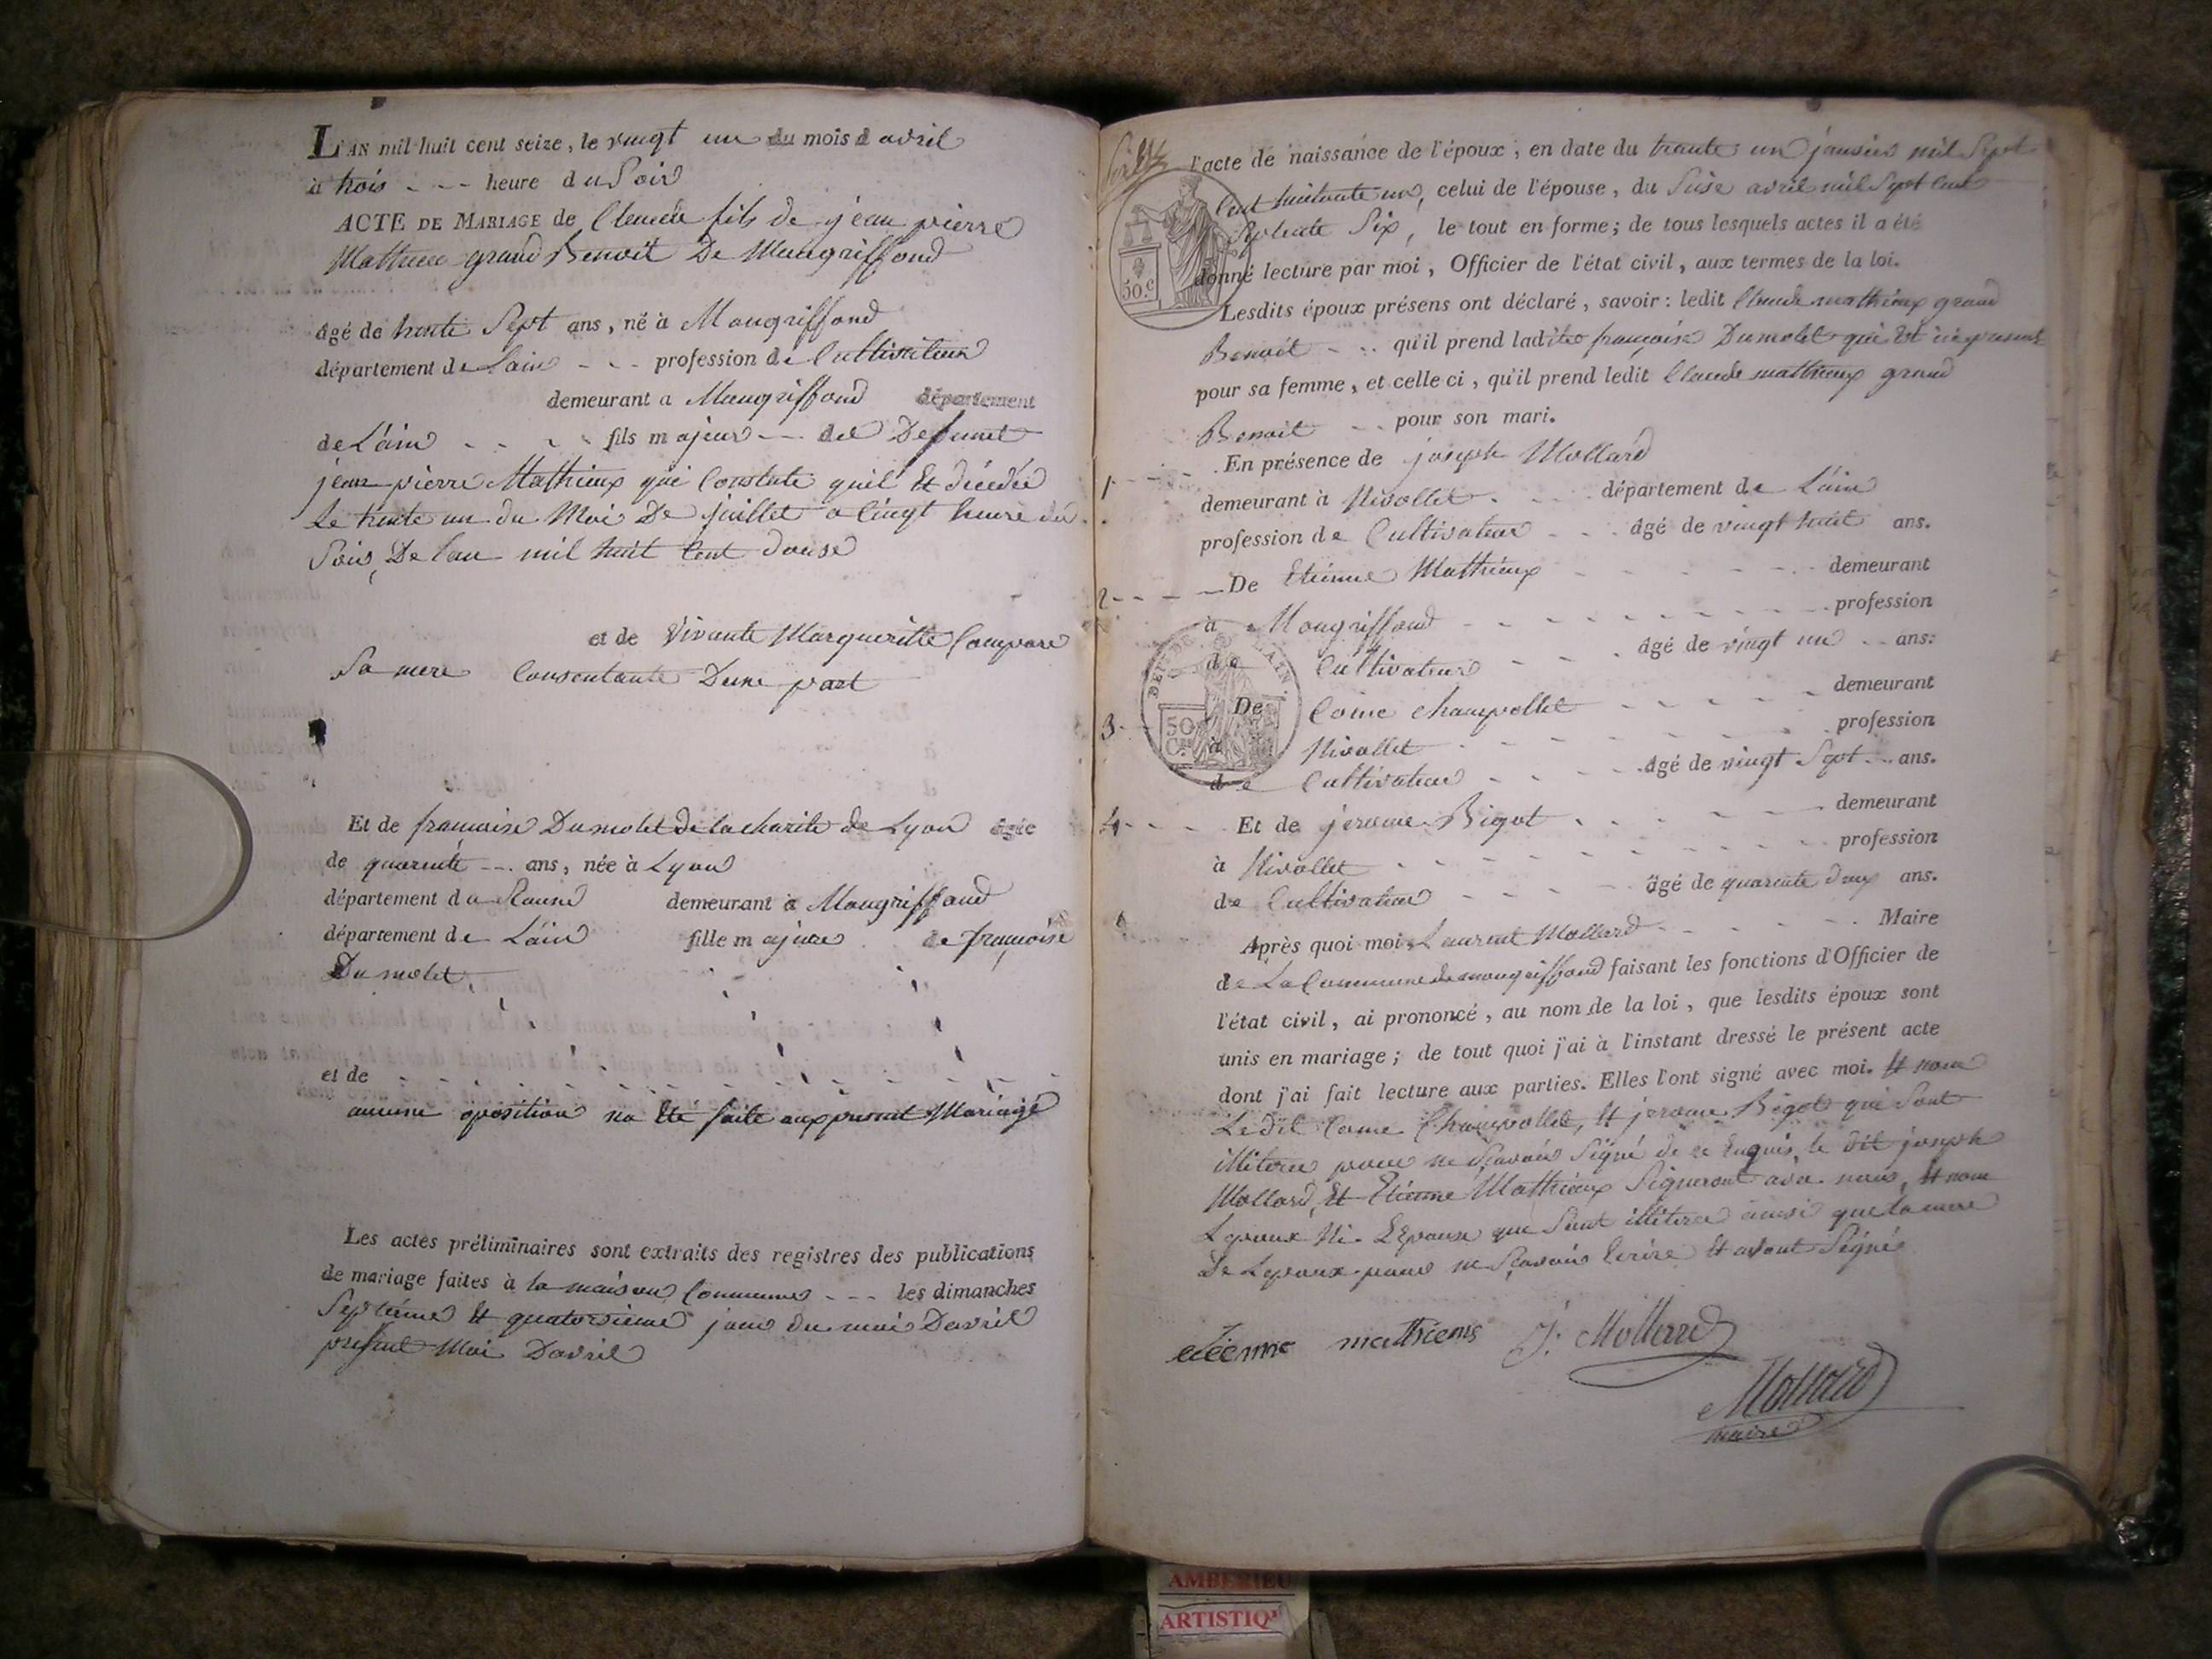 L'AN mil huit cent seize, le vingt un du mois d avril
à trois - - - heure du Soir
ACTE DE MARIAGE de Claude fils de jean pierre
Mathieu grand Benoit De Mongriffond
âgé de trente Sept ans, né à Mongriffond
département de Lain - - - profession de Cultivateur
demeurant a Mongriffond département
de L'ain - - - - fils majeur - - - de Defunt
jean pierre Mathieux qui Constate quil Et décédée
Le trente un du Moi De juillet a Cinqt heure du
Soir, De lan mil huit Cent douse
et de Vivante Margueritte Compare
Sa mere Consentante Dune part
Et de francoise Dumolet de la charite de Lyon âgée
de quarente --- ans, née à Lyon
département du Roune demeurant à Mongriffond
département de L'ain fille majure de françoise
Dumolet
et de - - - - - - - - - - - - - - -
aucune oposition na Eté faite aux present Mariage
Les actes préliminaires sont extraits des registres des publications
de mariage faites à la maison Commune - - - les dimanches
Septieme Et quatorsieme jour du moi Davril
present Moi Davril
l'acte de naissance de l'époux, en date du trente un janvier mil Sept
Cent huitante un, celui de l'épouse, du Seise avril mil Sept Cent
Soixante Six, le tout en forme; de tous lesquels actes il a été
donné lecture par moi, Officier de l'état civil, aux termes de la loi.
50.c
Lesdits époux présens ont déclaré, savoir: ledit Claude mathieux grand
Benoit - - - qu'il prend ladite françoise Dumolet qui Est
pour sa femme, et celle ci, qu'il prend ledit Claude mathieux grand
Benoit - - pour son mari.
1- - - - En présence de joseph Mollard
demeurant à Nivollet - - - département de L'ain
profession de Cultivateur - - - âgé de vingt huit ans.
2- - - - De Etienne Mathieux - - - - - demeurant
à Mongriffond - - - - - - - profession
de Cultivateur - - - âgé de vingt un - - ans.
DEP. DE L'AIN
50 C.
3- - De Come Champollet - - - - - demeurant
à Nivollet - - - - - - - profession
de Cultivateur - - - - âgé de vingt Sept - - ans.
4- - - - Et de jerome Bigot - - - - - demeurant
à Nivollet - - - - - - - - profession
de Cultivateur - - - - âgé de quarente deux ans.
Après quoi moi Laurent Mollard - - - - - Maire
de La Commune de mongriffond faisant les fonctions d'Officier de
l'état civil, ai prononcé, au nom de la loi, que lesdits époux sont
unis en mariage; de tout quoi j'ai à l'instant dressé le présent acte
dont j'ai fait lecture aux parties. Elles l'ont signé avec moi. Et nom
Le dit Come Champollet, Et jerome Bigot qui Sont
illiterer pour ne Scavoir Signé de ce Enquis, le dit joseph
Mollard, Et Etienne Mathieux Signeront avec nous, Et nom
Lepoux Ni Lepouse qui Sont illiterer ainsi que la mere
De Lepoux pour ne Scavoir Ecrire Et avont Signé
etienne mathieus J: Mollard
Mollard
maire
AMBERIEU
ARTISTIQ